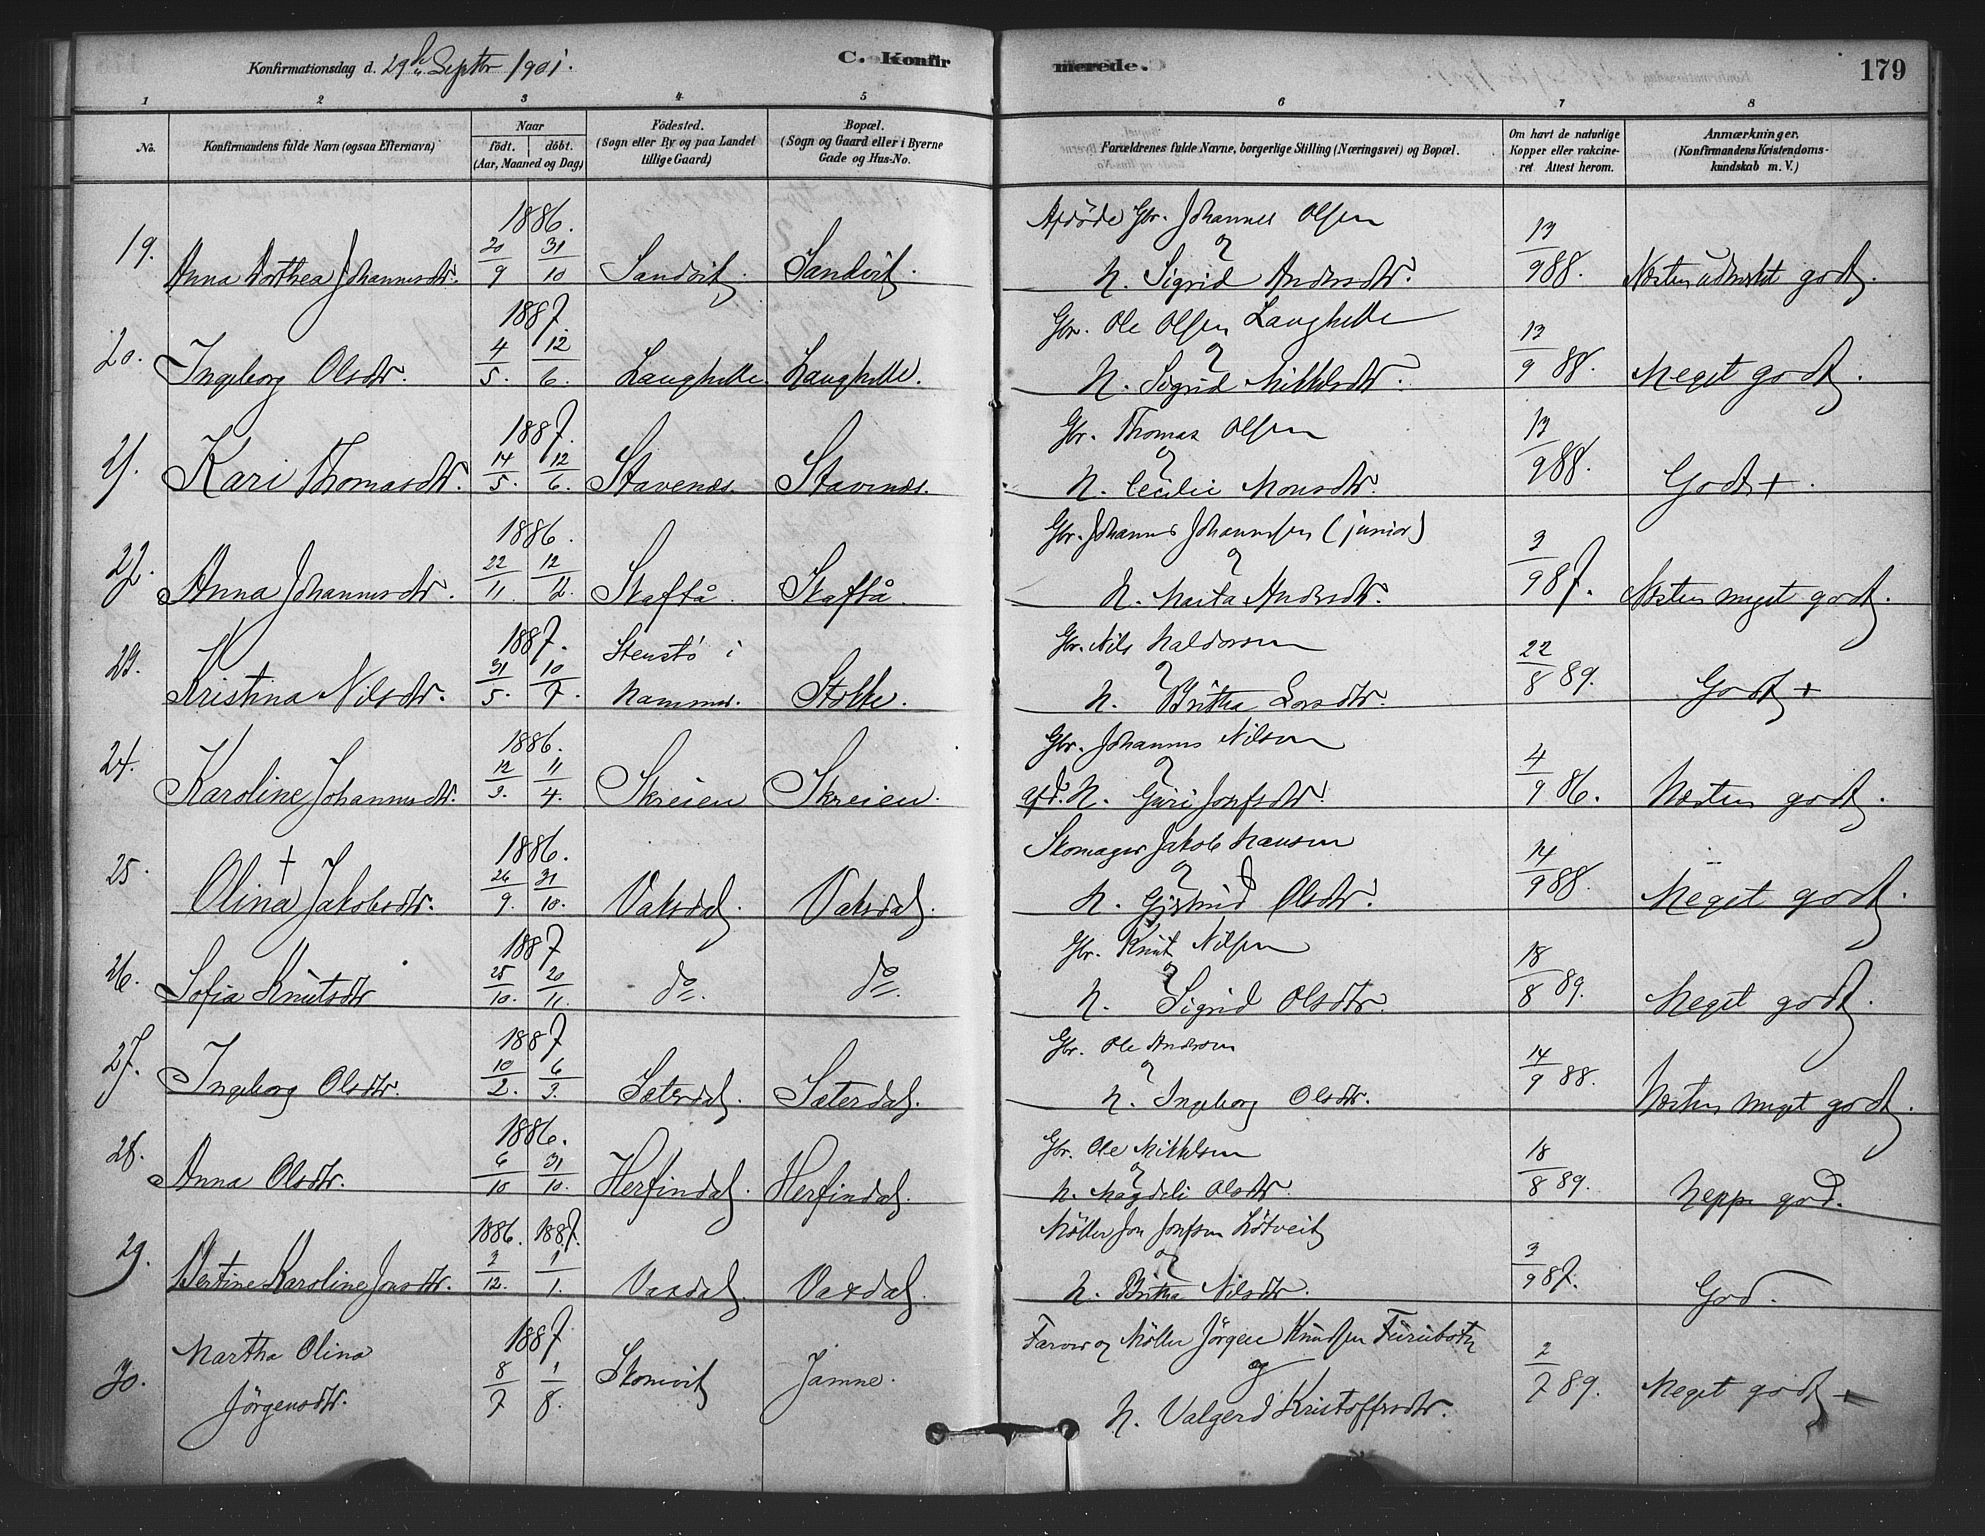 Konfirmationsdag d. 29de Septbr 1901.
C. Konfirmerede.
179
1 2 3 4 5 6 7 8
No.
Konfirmandens fulde Navn (ogsaa Efternavn)
Naar
födt. döbt.
(Aar, Maaned og Dag)
Födested.
(Sogn eller By og paa Landet
tillige Gaard)
Bopæl.
(Sogn og Gaard eller i Byerne
Gade og Hus-No.
Forældrenes fulde Navne, borgerlige Stilling (Næringsvei) og Bopæl.
Om havt de naturlige
Kopper eller vakcine-
ret Attest herom.
Anmærkninger.
(Konfirmandens Kristendoms-
kundskab m. V.)
1886. Afdöde Gbr. Johannes Olsen
19. Anna Dorthea Johannesdtr. 20/9 31/10 Sandvik. Sandvik. og H. Sigrid Andersdtr. 13/9 88. Næsten udmerket godt.
1887. Gbr. Ole Olsen Langhelle
20. Ingeborg Olsdtr. 4/5. 12/6. Langhelle. Langhelle. og H. Sigrid Mikkelsdtr. 13/9 88. Meget godt.
1887. Gbr. Thomas Olsen
21. Kari Thomasdtr. 14/5. 12/6. Stavenæs. Stavenæs. og H. Cecilie Monsdtr. 13/9 88. Godt +.
1886. Gbr. Johannes Johannessen (junior)
22. Anna Johannesdtr. 22/11. 12/12. Skaftå. Skaftå. og H. Marta Andersdtr. 3/9 87. Næsten meget godt.
1887. Stenstö i Gbr. Nils Haldorsen
23. Kristina Nilsdtr. 31/5. 10/7. Hammer. Stokke. og H. Britha Larsdtr. 22/8 89. Godt +
1886. Gbr. Johannes Nilsen
24. Karoline Johannesdtr. 12/3. 11/4. Skreien Skreien. og afd. H. Guri Josefsdtr. 4/9 86. Næsten godt.
1886. Skomager Jakob Hansen
25. + Olina Jakobsdtr. 26/9. 31/10. Vaksdal. Vaksdal. og H. Gjertrud Olsdtr. 14/9 88. Meget godt.
1887 Gbr. Knut Nilsen
26. Sofia Knutsdtr 25/10. 20/11. do. do. og H. Sigrid Olsdtr. 18/8 89. Meget godt.
1887 Gbr. Ole Andersen
27. Ingeborg Olsdtr. 10/2. 6/3. Sæterdal. Sæterdal. og H. Ingeborg Olsdtr. 14/9 88. Næsten meget godt.
1886. Gbr. Ole Mikkelsen
28. Anna Olsdtr. 6/10 31/10. Herfindal. Herfindal. og H. Magdeli Olsdtr. 18/8 89. Neppe god.
1886. 1887. Möller Jon Josefsen Lötveit
29. Bertine Karoline Jonsdtr. 3/12. 1/1. Vaxdal. Vaxdal. og H. Britha Nilsdtr. 3/9 87. God.
Martha Olina 1887 Farver og Möller Jörgen Knudsen Furubotn
30. Jörgensdtr. 8/7 1/8. Skomvik Jamne. og H. Valgerd Kristoffersdtr. 2/7 89. Meget godt +